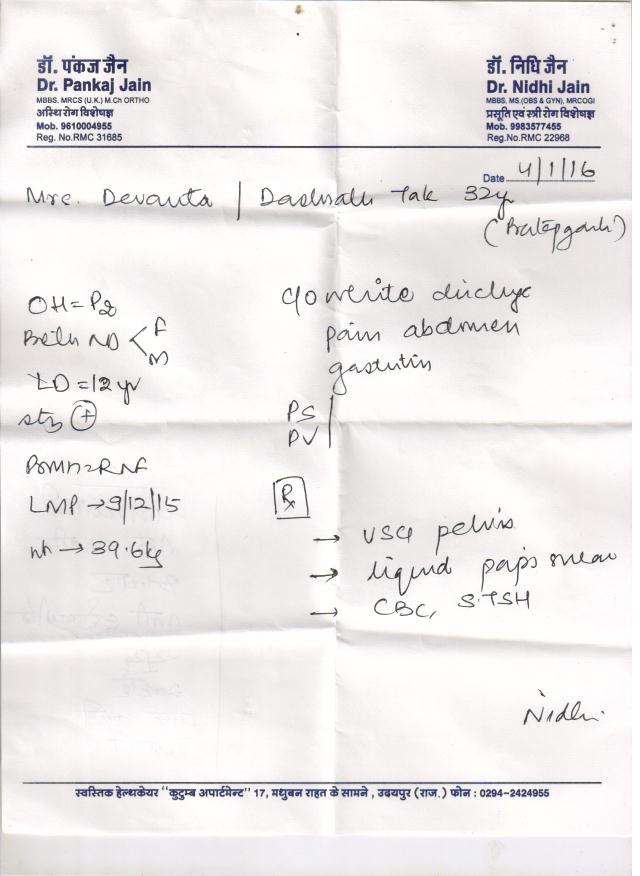 डॉ. पंकज जैन
Dr. Pankaj Jain
MBBS, MRCS (U.K.) M.Ch ORTHO
अस्थि रोग विशेषज्ञ
Mob. 9610004955
Reg. No.RMC 31685
डॉ. निधि जैन
Dr. Nidhi Jain
MBBS, MS.(OBS & GYN), MRCOGI
प्रसूति एवं स्त्री रोग विशेषज्ञ
Mob. 9983577455
Reg.No.RMC 22968
Date 4/1/16
Mrs. Devanta / Dashrath Tak 32y
(Pratapgarh)
OH = P2
Both ND < F
M
LD = 12 yr
stz +
PSMH = RNF
LMP → 9/12/15
wt → 39.6kg
c/o white discharge
pain abdomen
gastritis
PS
PV
Rx
→ USG pelvis
→ liquid paps smear
→ CBC, S.TSH
Nidhi.
स्वस्तिक हेल्थकेयर "कुटुम्ब अपार्टमेन्ट" 17, मधुबन राहत के सामने , उदयपुर (राज.) फोन : 0294-2424955